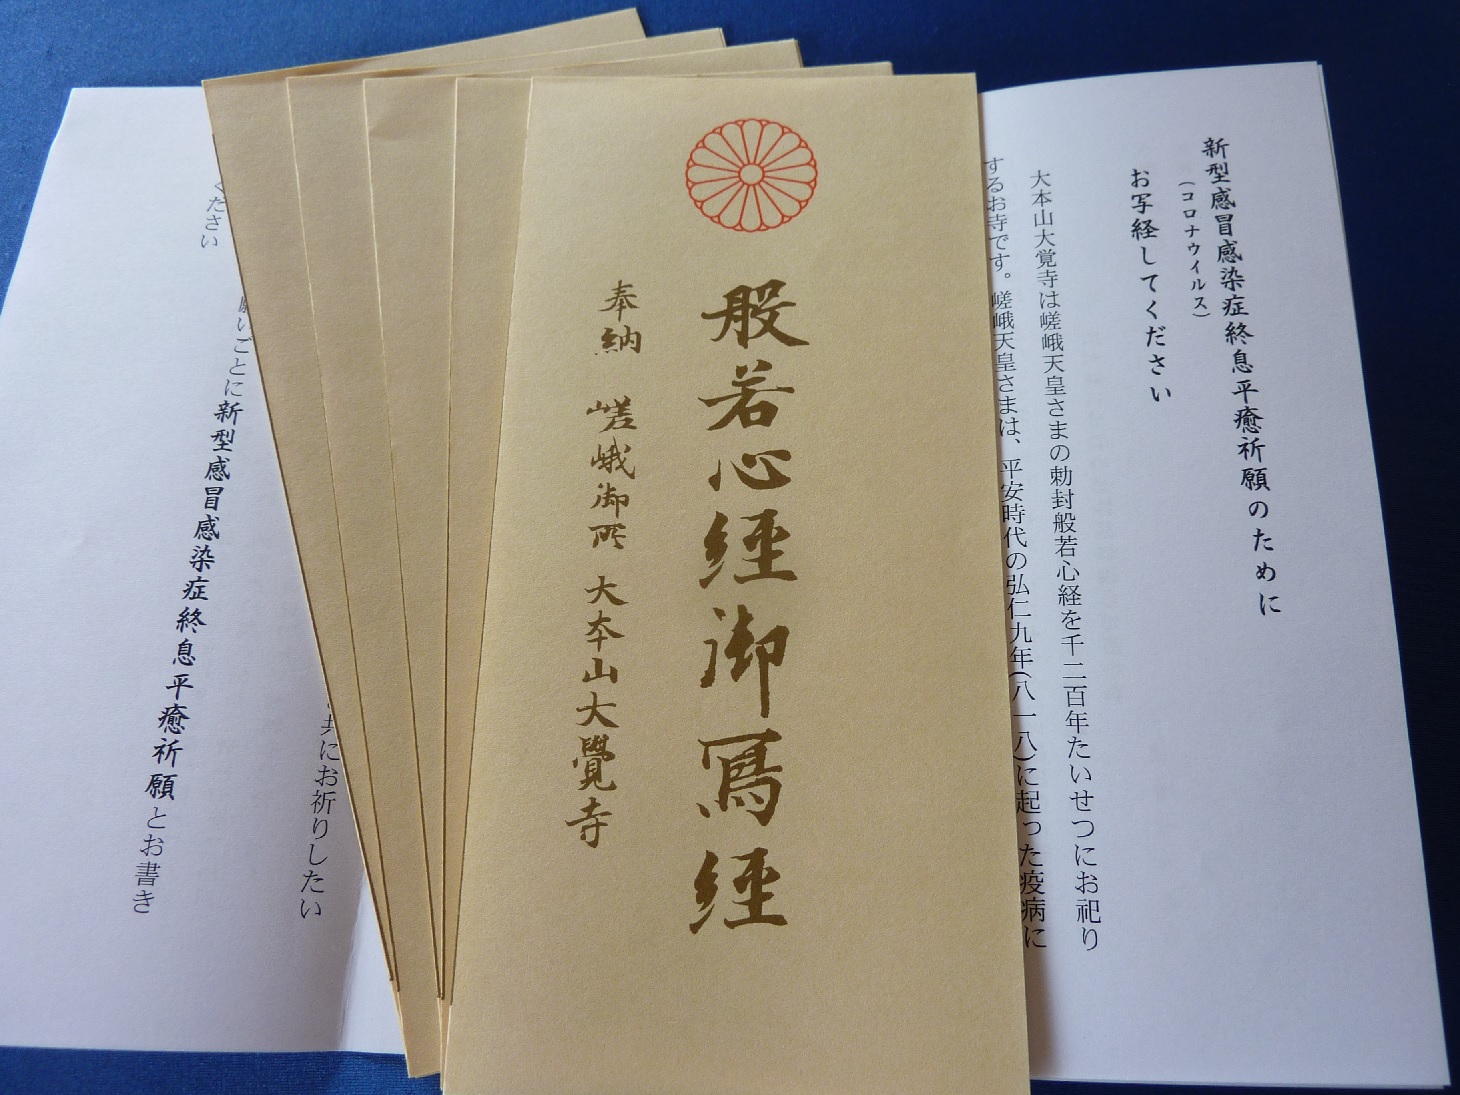 新型感冒感染症終息平癒祈願のために
(コロナウイルス)
お写経してください
大本山大覚寺は嵯峨天皇さまの勅封般若心経を千二百年たいせつにお祀り
するお寺です。嵯峨天皇さまは、平安時代の弘仁九年(八一八)に起った疫病に
般若心経御寫経
奉納 嵯峨御所 大本山大覺寺
共にお祈りしたい
願いごとに新型感冒感染症終息平癒祈願とお書き
ください